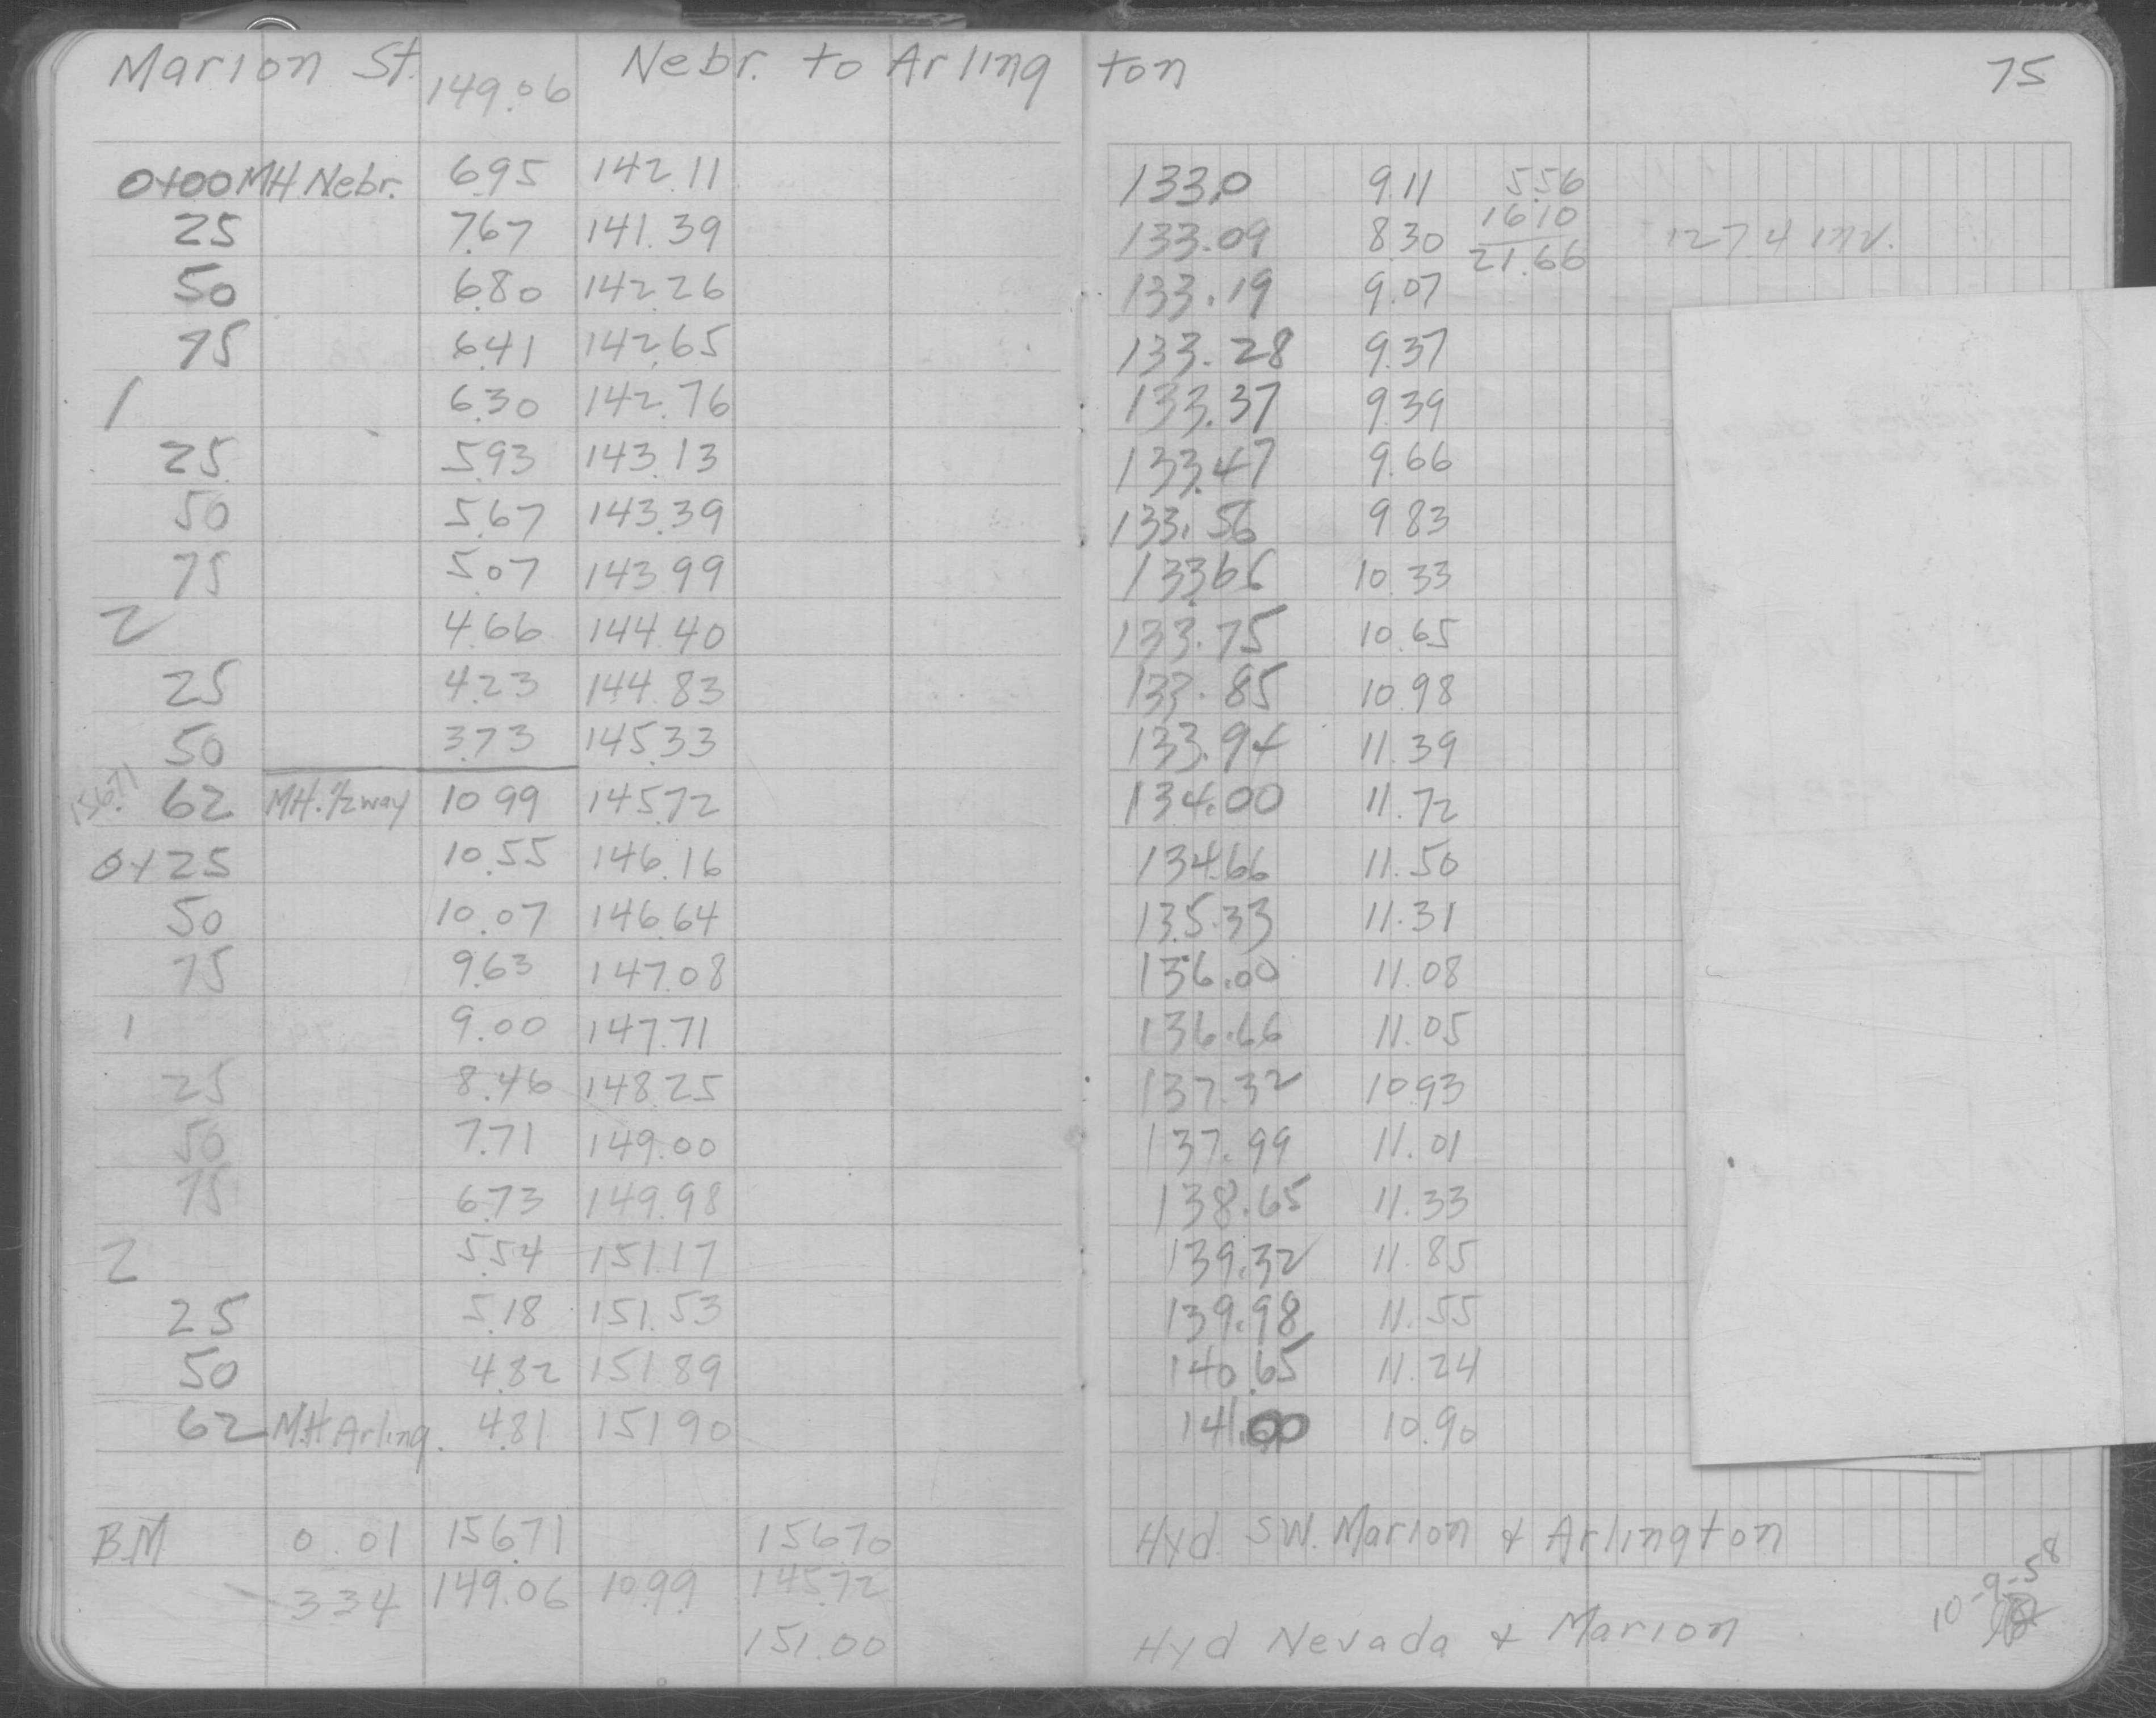 Marion St. Nebr. to Arlington 75
149.06
0+00 MH Nebr. 6.95 142.11 133.0 9.11 5.56
25 7.67 141.39 133.09 8.30 16.10 127.4 inv.
50 6.80 142.26 133.19 9.07 21.66
75 6.41 142.65 133.28 9.37
1 6.30 142.76 133.37 9.39
25 5.93 143.13 133.47 9.66
50 5.67 143.39 133.56 9.83
75 5.07 143.99 133.66 10.33
2 4.66 144.40 133.75 10.65
25 4.23 144.83 133.85 10.98
50 3.73 145.33 133.94 11.39
156.71 62 MH. 1/2 way 10.99 145.72 134.00 11.72
0+25 10.55 146.16 134.66 11.50
50 10.07 146.64 135.33 11.31
75 9.63 147.08 136.00 11.08
1 9.00 147.71 136.66 11.05
25 8.46 148.25 137.32 10.93
50 7.71 149.00 137.99 11.01
75 6.73 149.98 138.65 11.33
2 5.54 151.17 139.32 11.85
25 5.18 151.53 139.98 11.55
50 4.82 151.89 140.65 11.24
62 M.H Arling. 4.81 151.90 141.00 10.90
B.M 0.01 156.71 156.70 Hyd. SW. Marion & Arlington
3.34 149.06 10.99 145.72 10-9-58
151.00 Hyd Nevada & Marion